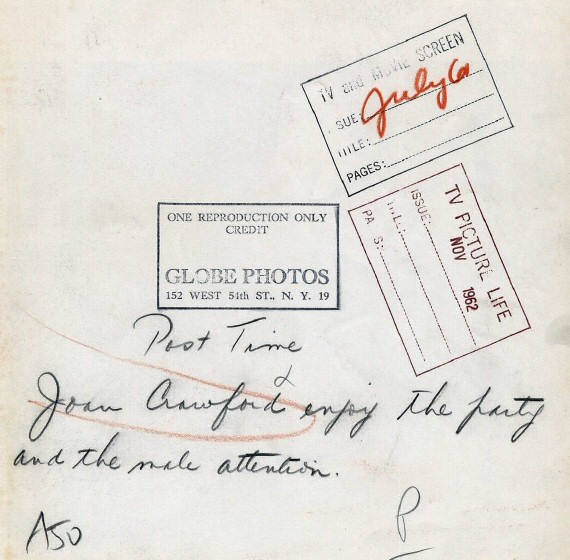 TV and MOVIE SCREEN
ISSUE: July 61
TITLE:
PAGES:
TV PICTURE LIFE
NOV 1962
ISSUE:
ONE REPRODUCTION ONLY
CREDIT
GLOBE PHOTOS
152 WEST 54th ST., N. Y. 19
Post Time
Joan Crawford enjoy the party
and the male attention.
ASO
P